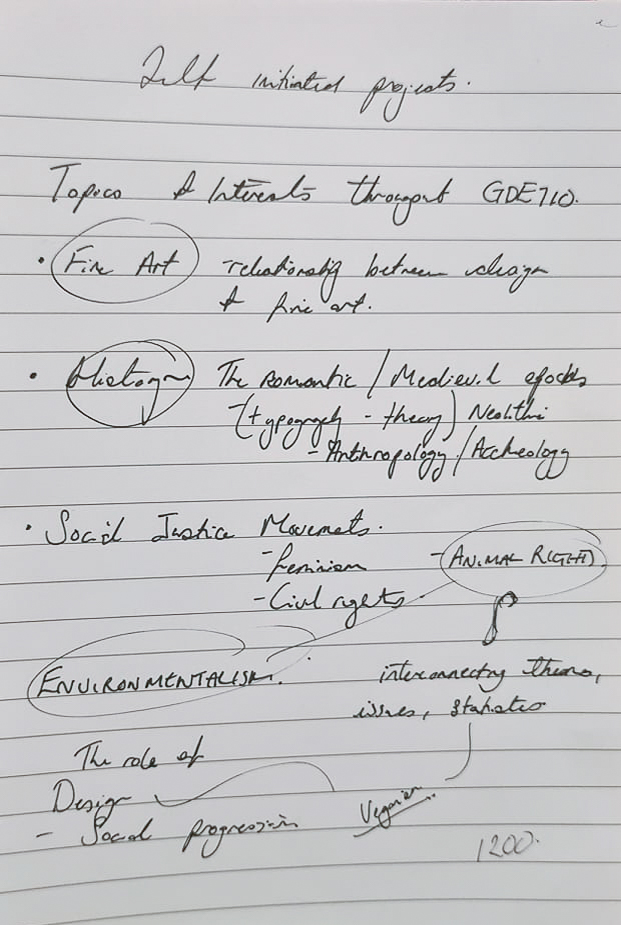 Self initiated projects.
Topics & Interests throughout GDE710.
• Fine Art - relationship between design
& fine art.
• History The Romantic / Medieval epochs
(typography - theory) Neolithic
- Anthropology / Archeology
• Social Justice Movements.
- feminism - ANIMAL RIGHTS
- Civil rights.
ENVIRONMENTALISM. interconnecting themes,
issues, statistics
The role of
Design
- Social progression Veganism.
1200.